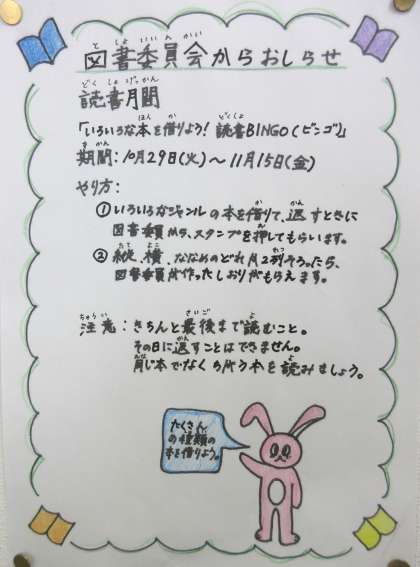 図書委員会からおしらせ
読書月間
「いろいろな本を借りよう! 読書BINGO(ビンゴ)」
期間:10月29日(火)～11月15日(金)
やり方:
①いろいろなジャンルの本を借りて、返すときに
図書委員から、スタンプを押してもらいます。
②縦、横、ななめのどれか2列そろったら、
図書委員が作ったしおりがもらえます。
注意:きちんと最後まで読むこと。
その日に返すことはできません。
同じ本でなくちがう本を読みましょう。
たくさん
の種類の
本を借りよう。